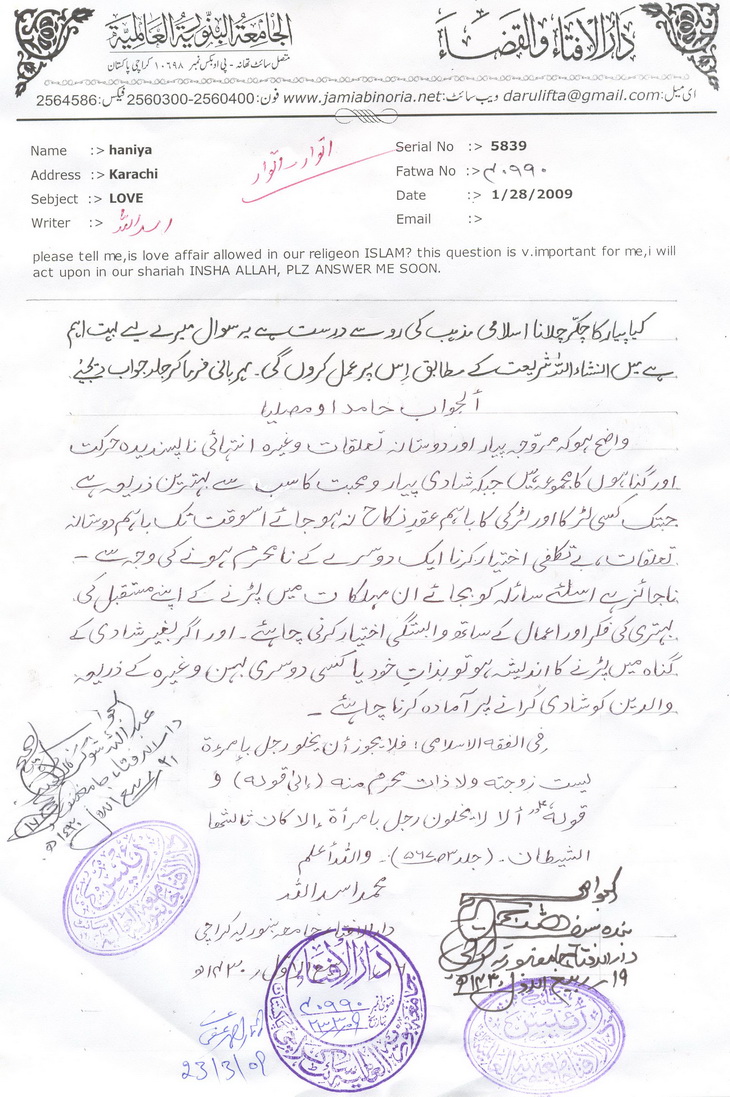 دار الافتاء والقضاء
الجامعة البنورية العالمية
متصل سائٹ تھانہ - پی او بکس نمبر ۱۰۶۹۸ کراچی پاکستان
ای میل: darulifta@gmail.com ویب سائٹ: www.jamiabinoria.net فون: 2560300-2560400 فیکس: 2564586
Name :> haniya
Serial No :> 5839
Address :> Karachi
Fatwa No :> ۴۰۹۹۰
Sebject :> LOVE
Date :> 1/28/2009
Writer :> اسد اللہ
Email :>
please tell me,is love affair allowed in our religeon ISLAM? this question is v.important for me,i will
act upon in our shariah INSHA ALLAH, PLZ ANSWER ME SOON.
کیا پیار کا چکر چلانا اسلامی مذہب کی رو سے درست ہے یہ سوال میرے لیے بہت اہم
ہے میں انشاء اللہ شریعت کے مطابق اِس پر عمل کروں گی۔ مہربانی فرما کر جلد جواب دیجئے
الجواب حامدا و مصلیا
واضح ہو کہ مروّجہ پیار اور دوستانہ تعلقات وغیرہ انتہائی ناپسندیدہ حرکت
اور گناہوں کا مجموعہ ہیں جبکہ شادی پیار و محبت کا سب سے بہترین ذریعہ ہے
جبتک کسی لڑکا اور لڑکی کا باہم عقدِ نکاح نہ ہو جائے اسوقت تک باہم دوستانہ
تعلقات، بے تکلفی اختیار کرنا ایک دوسرے کے نامحرم ہونے کی وجہ سے ۔
ناجائز ہے اسلئے سائلہ کو بجائے ان مہلکات میں پڑنے کے اپنے مستقبل کی
بہتری کی فکر اور اعمال کے ساتھ وابستگی اختیار کرنی چاہئے ۔ اور اگر بغیر شادی کے
گناہ میں پڑنے کا اندیشہ ہو تو بذاتِ خود یا کسی دوسری بہن وغیرہ کے ذریعہ
والدین کو شادی کرانے پر آمادہ کرنا چاہئے ۔
فی الفقه الاسلامی : فلا یجوز أن یخلو رجل بإمرءة
لیست زوجته ولا ذات محرم منه (الی قوله) و
قوله ألا لا یخلون رجل بامرأة الا کان ثالثهما
الشیطان ۔ (جلد ۳ ص ۵۶۷) ۔ واللہ أعلم
محمد اسد اللہ
دار الافتاء جامعہ بنوریہ کراچی
ربیع الاول ۱۴۳۰ھ
الجواب صحیح
دار الافتاء جامعہ بنوریہ
الجواب صحیح
دار الافتاء جامعہ بنوریہ کراچی
۱۹ ربیع الاول ۱۴۳۰ھ
رئیس
دار الافتاء
فتویٰ نمبر ۴۰۹۹۰
تاریخ
رئیس
23/3/09